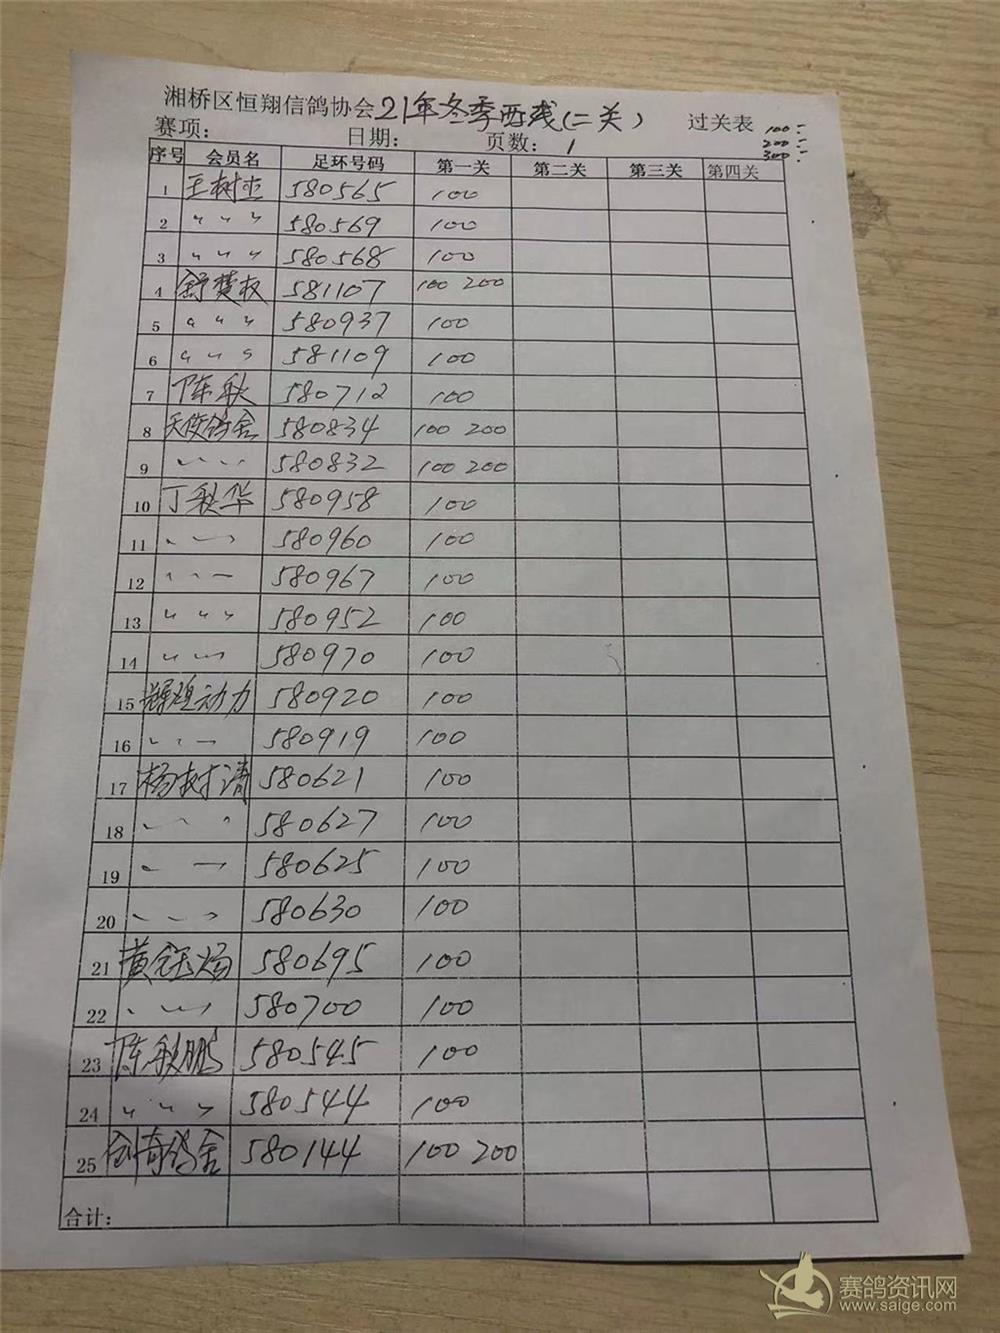 湘桥区恒翔信鸽协会21年冬季西线(二关) 过关表
赛项: 日期: 页数: 1
100:
200:
300:
序号 会员名 足环号码 第一关 第二关 第三关 第四关
1 王树生 580565 100
2 〃 〃 〃 580569 100
3 〃 〃 〃 580568 100
4 舒楚权 581107 100 200
5 〃 〃 〃 580937 100
6 〃 〃 〃 581109 100
7 陈秋 580712 100
8 天使鸽舍 580834 100 200
9 〃 〃 〃 580832 100 200
10 丁秋华 580958 100
11 〃 〃 580960 100
12 〃 〃 〃 580967 100
13 〃 〃 〃 580952 100
14 〃 〃 580970 100
15 辉煌动力 580920 100
16 〃 〃 〃 580919 100
17 杨树清 580621 100
18 〃 〃 〃 580627 100
19 〃 〃 580625 100
20 〃 〃 〃 580630 100
21 黄钰炀 580695 100
22 〃 〃 580700 100
23 陈秋鹏 580545 100
24 〃 〃 〃 580544 100
25 创奇鸽舍 580144 100 200
合计:
赛鸽资讯网
www.saige.com